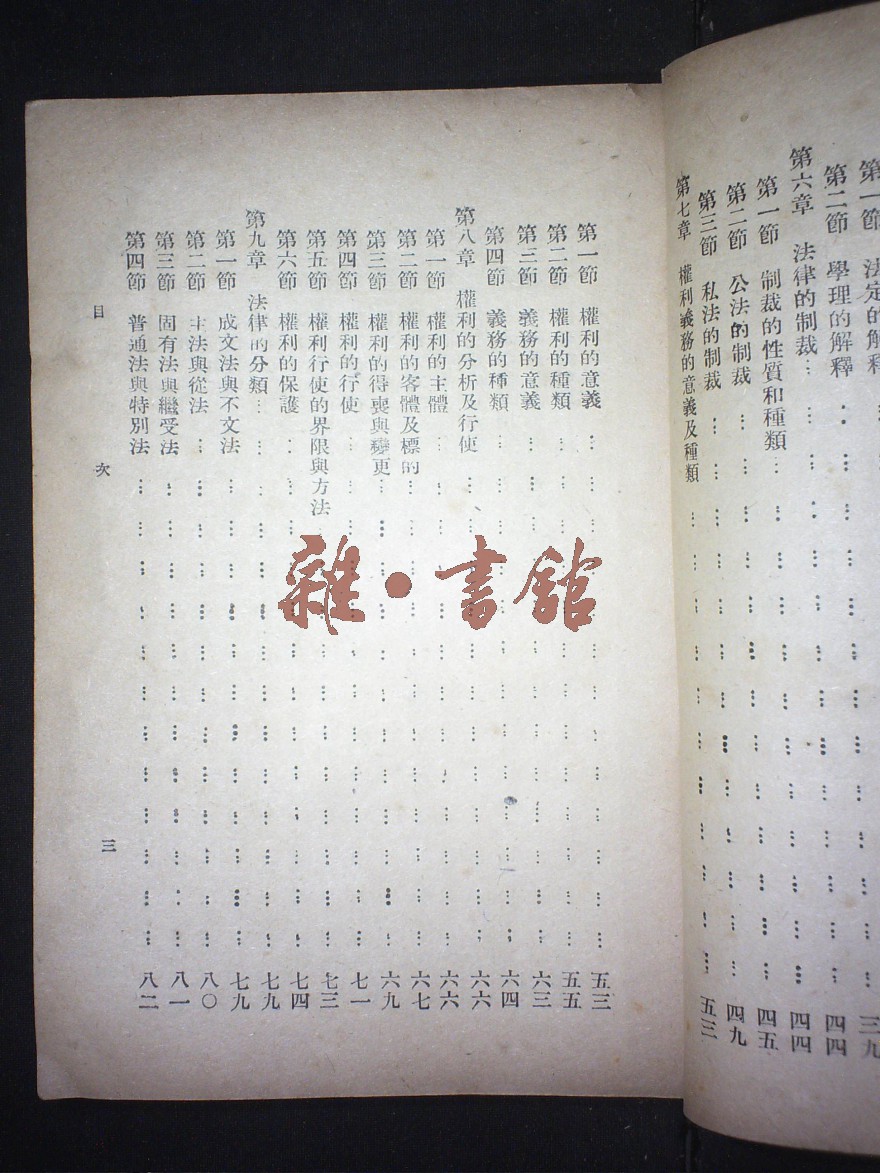 第一節 法定的解釋
第二節 學理的解釋……三九
第六章 法律的制裁……四四
第一節 制裁的性質和種類……四四
第二節 公法的制裁……四五
第三節 私法的制裁……四九
第七章 權利義務的意義及種類……五三
第一節 權利的意義……五三
第二節 權利的種類……五五
第三節 義務的意義……六三
第四節 義務的種類……六四
第八章 權利的分析及行使……六六
第一節 權利的主體……六六
第二節 權利的客體及標的……六七
第三節 權利的得喪與變更……六九
第四節 權利的行使……七一
第五節 權利行使的界限與方法……七三
第六節 權利的保護……七四
第九章 法律的分類……七九
第一節 成文法與不文法……七九
第二節 主法與從法……八〇
第三節 固有法與繼受法……八一
第四節 普通法與特別法……八二
目次 三
雜·書館